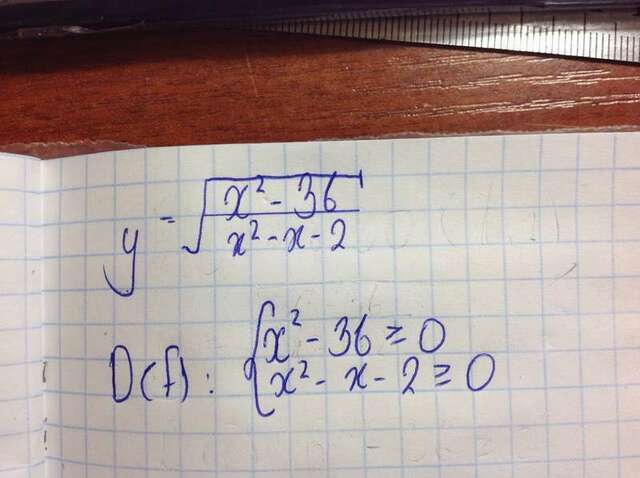 y = √((x² - 36)/(x² - x - 2))
D(f): { x² - 36 ≥ 0
x² - x - 2 ≥ 0